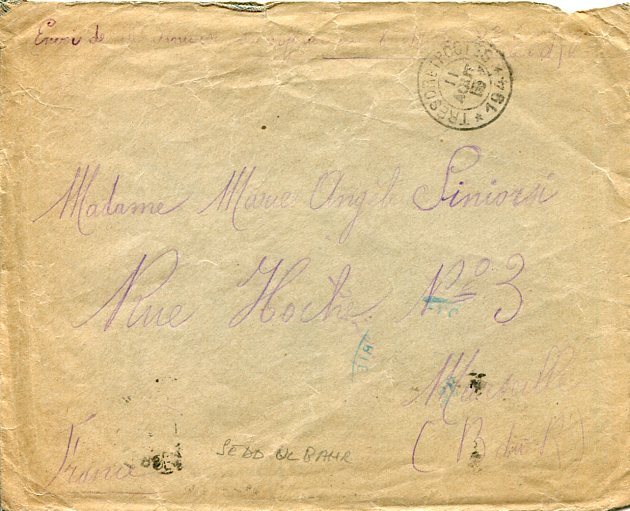 Envoi de
TRESOR ET POSTES * 194 *
11
AOUT
Madame Marie Angèle Siniorsi
Rue Hoche Nº 3
Marseille
(B du R)
France
SEDD UL BAHR